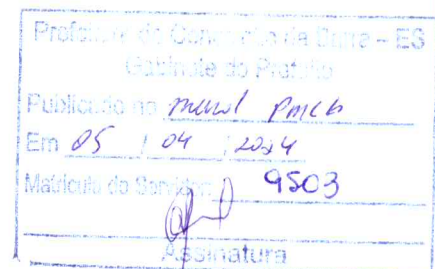 Prefeitura de Conceição da Barra – ES
Gabinete do Prefeito
Publicado no mural PMCB
Em 05 / 04 / 2024
Matrícula do Servidor: 9503
Assinatura